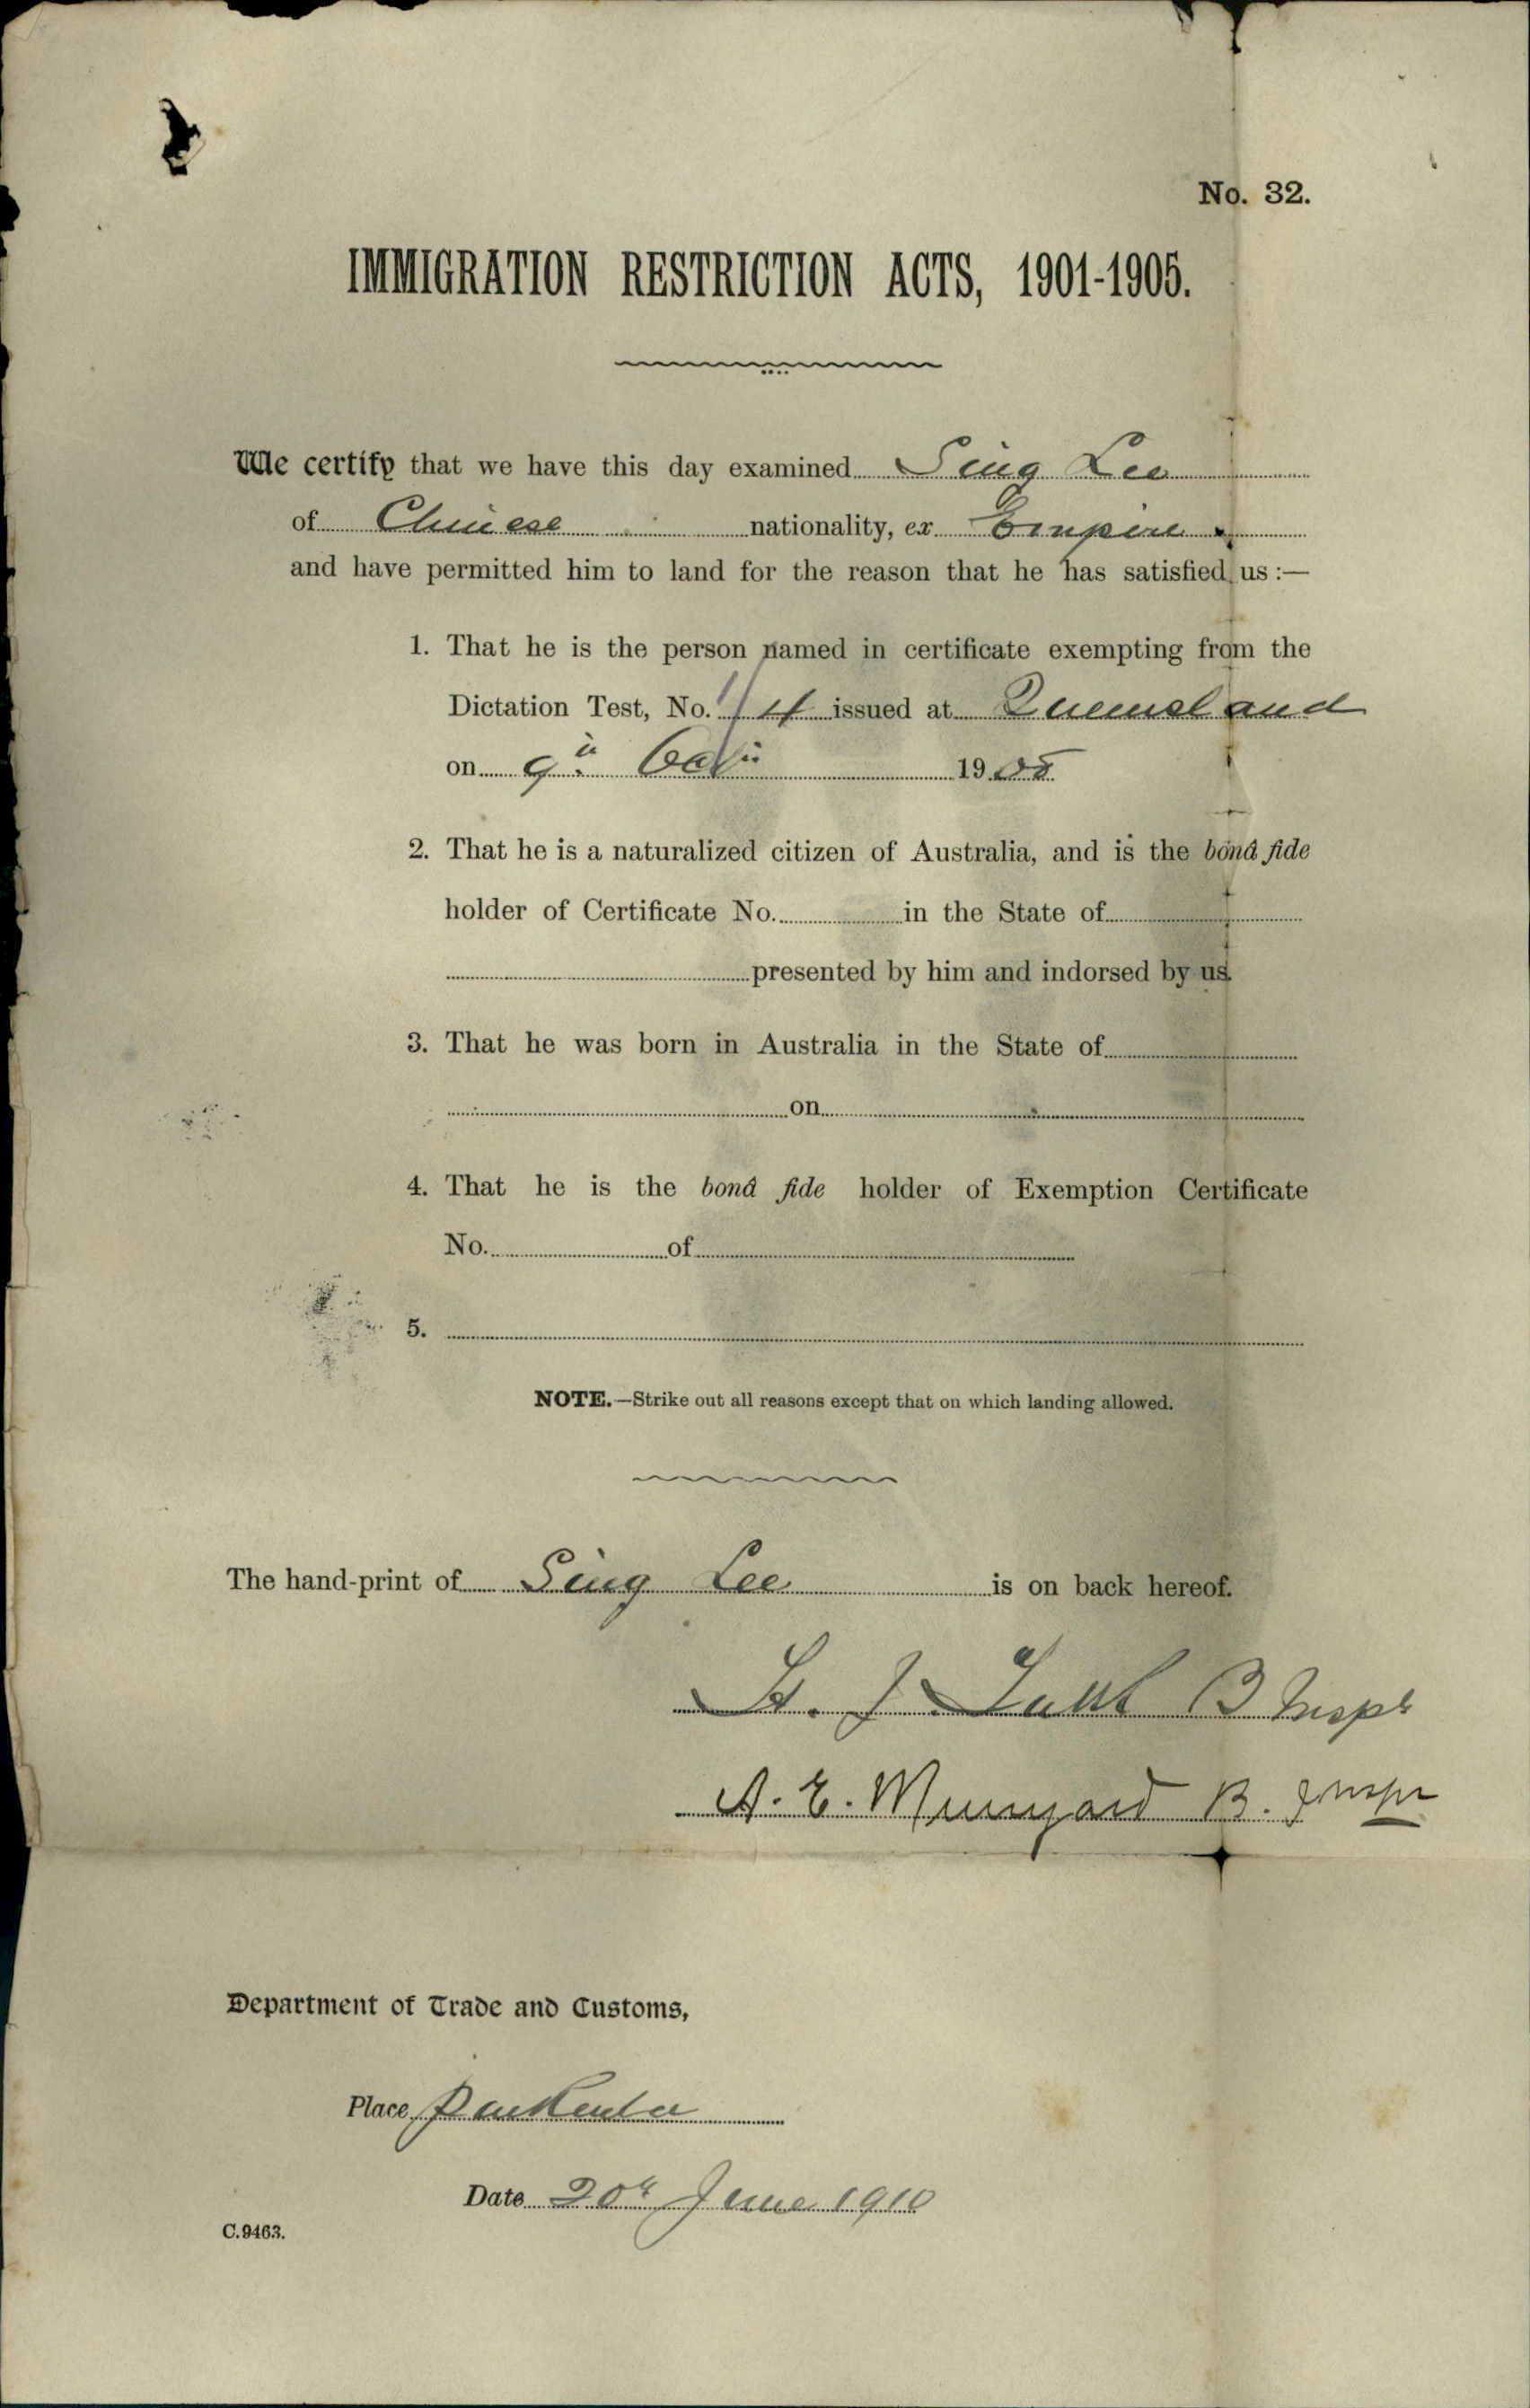 No. 32.
IMMIGRATION RESTRICTION ACTS, 1901-1905.
We certify that we have this day examined Sing Lee
of Chinese nationality, ex Empire
and have permitted him to land for the reason that he has satisfied us :—
1. That he is the person named in certificate exempting from the
Dictation Test, No. issued at Queensland
on 9th 1908
2. That he is a naturalized citizen of Australia, and is the bonâ fide
holder of Certificate No. in the State of
presented by him and indorsed by us.
3. That he was born in Australia in the State of
on
4. That he is the bonâ fide holder of Exemption Certificate
No. of
5.
NOTE.—Strike out all reasons except that on which landing allowed.
The hand-print of Sing Lee is on back hereof.
J. B Inspr
A. E. Munyard B. Inspr
Department of Trade and Customs,
Place Pinkenba
Date 20th June 1910
C.9463.